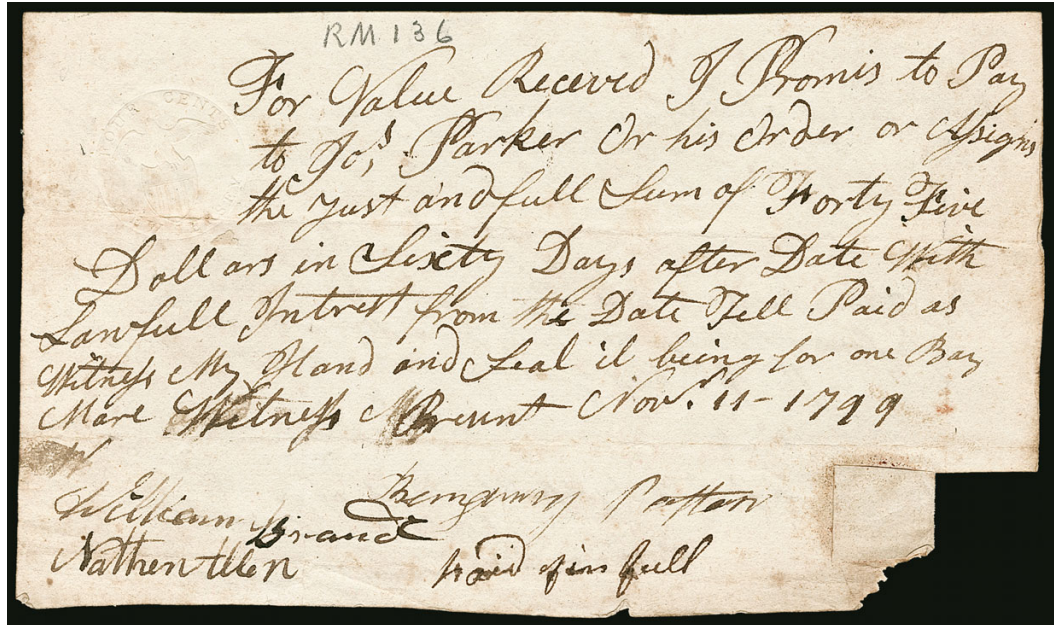 RM 136
FOUR CENTS
For Value Receved I Promis to Pay
to Jos Parker Or his Order or Assigns
the Just and full Sum of Forty Five
Dollars in Sixty Days after Date With
Lawfull Intrest from the Date Tell Paid as
Witness My Hand and Seal it being for one Bay
Mare Witness Present Novr. 11 - 1799
William Brand
Nathen Allen
paid in full